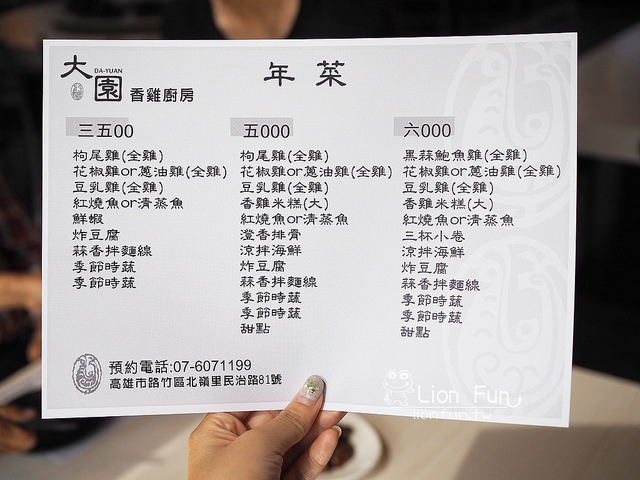 大園
DA-YUAN
香雞廚房
年菜
三五00
枸尾雞(全雞)
花椒雞or蔥油雞(全雞)
豆乳雞(全雞)
紅燒魚or清蒸魚
鮮蝦
炸豆腐
蒜香拌麵線
季節時蔬
季節時蔬
五000
枸尾雞(全雞)
花椒雞or蔥油雞(全雞)
豆乳雞(全雞)
香雞米糕(大)
紅燒魚or清蒸魚
澄香排骨
涼拌海鮮
炸豆腐
蒜香拌麵線
季節時蔬
季節時蔬
甜點
六000
黑蒜鮑魚雞(全雞)
花椒雞or蔥油雞(全雞)
豆乳雞(全雞)
香雞米糕(大)
紅燒魚or清蒸魚
三杯小卷
涼拌海鮮
炸豆腐
蒜香拌麵線
季節時蔬
季節時蔬
甜點
預約電話:07-6071199
高雄市路竹區北嶺里民治路81號
Lion Fun
lionfun.tw